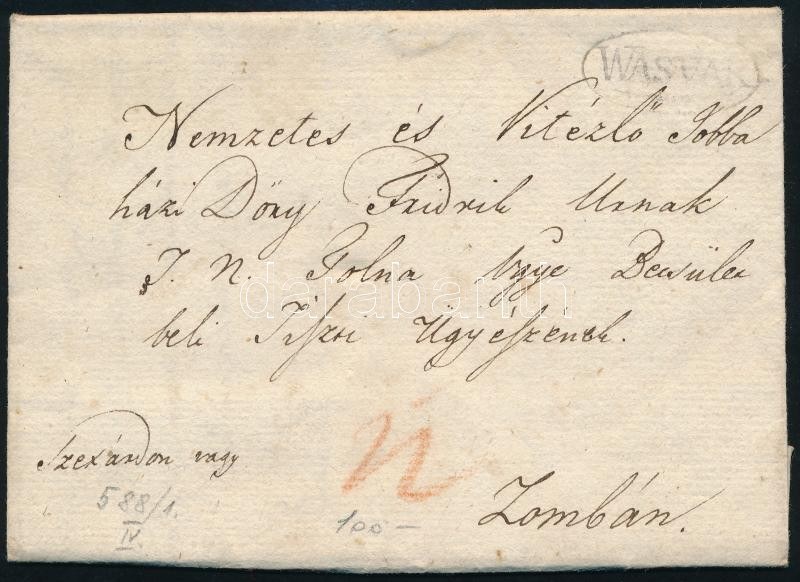 WASVAR
Nemzetes és Vitézlő Jobba
házi Dőry Fridrik Urnak
T. N. Tolna Vgye Becsület
beli Tiszti Ügyészének.
Szexárdon vagy
Zombán.
588/1.
IV.
100 —
darabanth